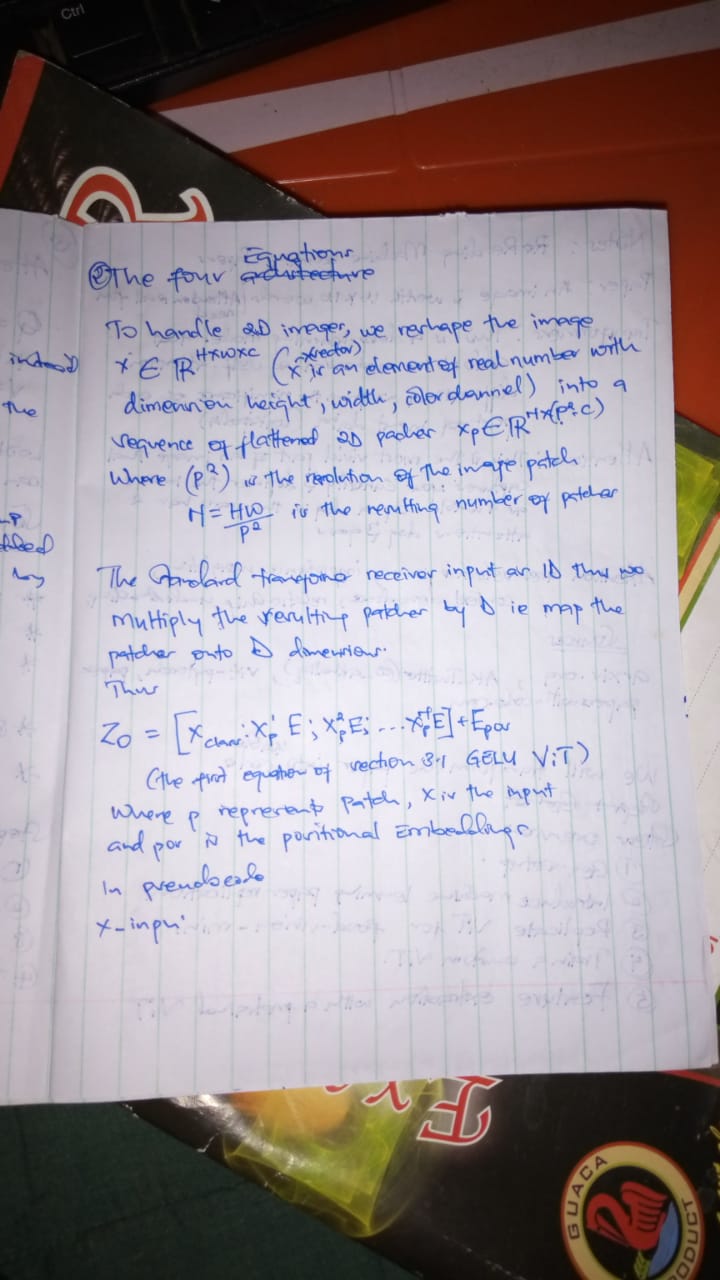 Ctrl
② The four architecture Equations
To handle 2D images, we reshape the image
x ∈ ℝ^HxWxC (x(vector) is an element of real number with
dimension height, width, color channel) into a
sequence of flattened 2D patches xp ∈ ℝ^Nx(p².C)
Where (p²) is the resolution of the image patch
N = HW/P² is the resulting number of patches
The Standard transformer receives input as 1D thus we
multiply the resulting patches by D ie map the
patches onto D dimensions.
Thus
Z0 = [xclass; xp¹E; xp²E; ... xpᴺE] + Epos
(the first equation of section 3.1 GELU ViT)
Where p represents patch, x is the input
and pos is the positional Embeddings
In pseudocode
x-inpu
the
GUACA